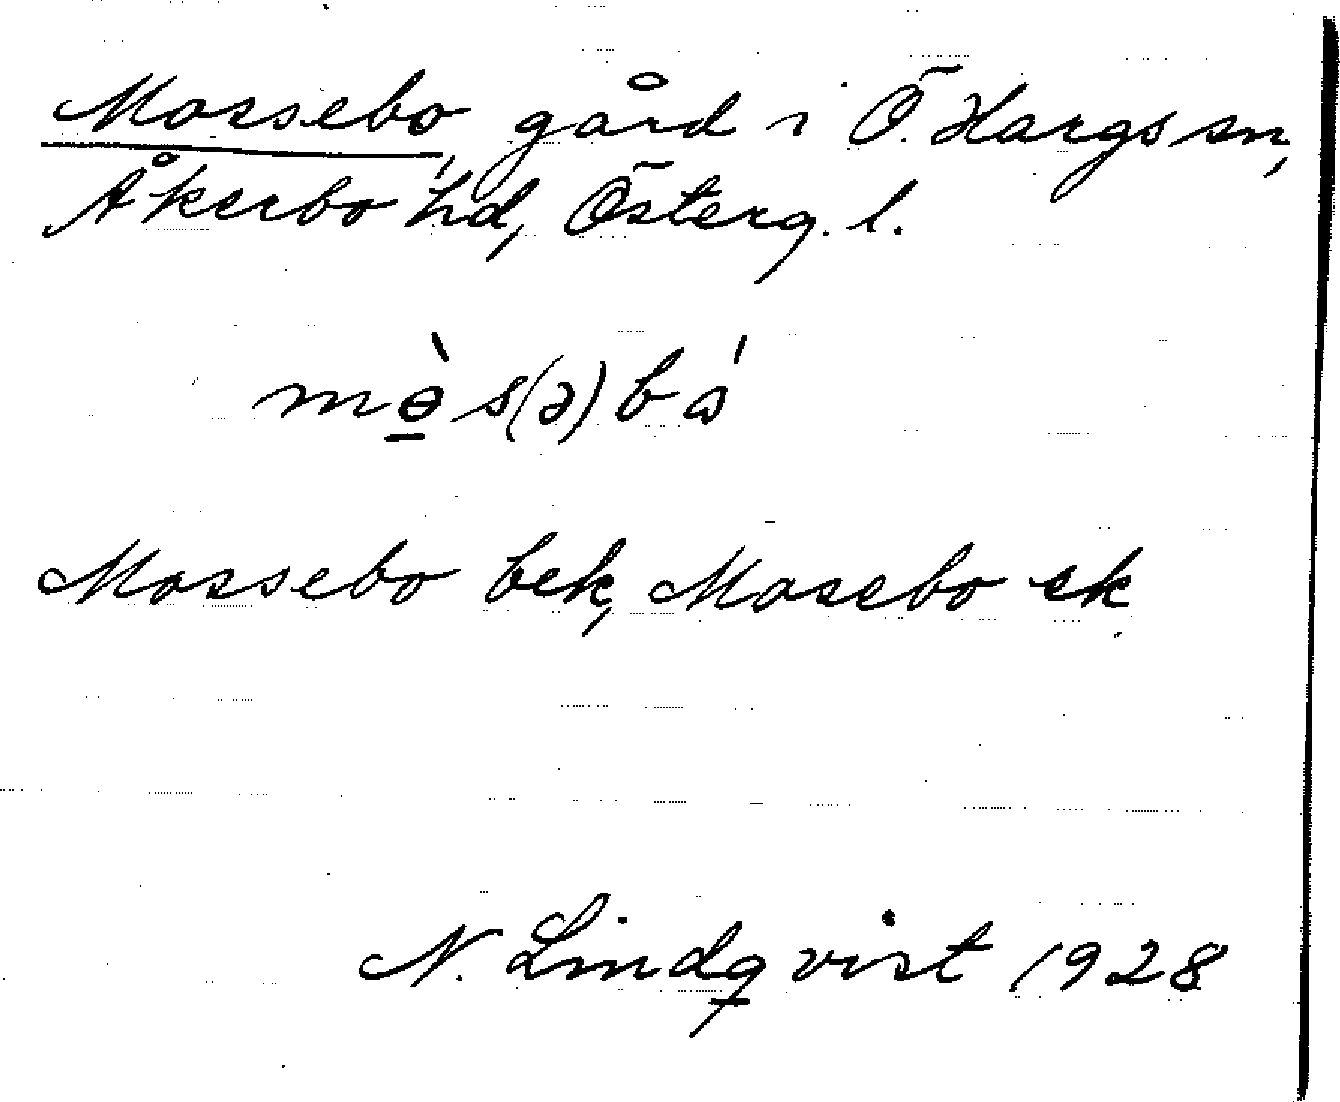 Mossebo gård i Ö. Hargs sn,
Åkerbo hd, Österg. l.
mɵ̀s(ə)bɷ́
Mossebo bek, Mosebo ek
N. Lindqvist 1928